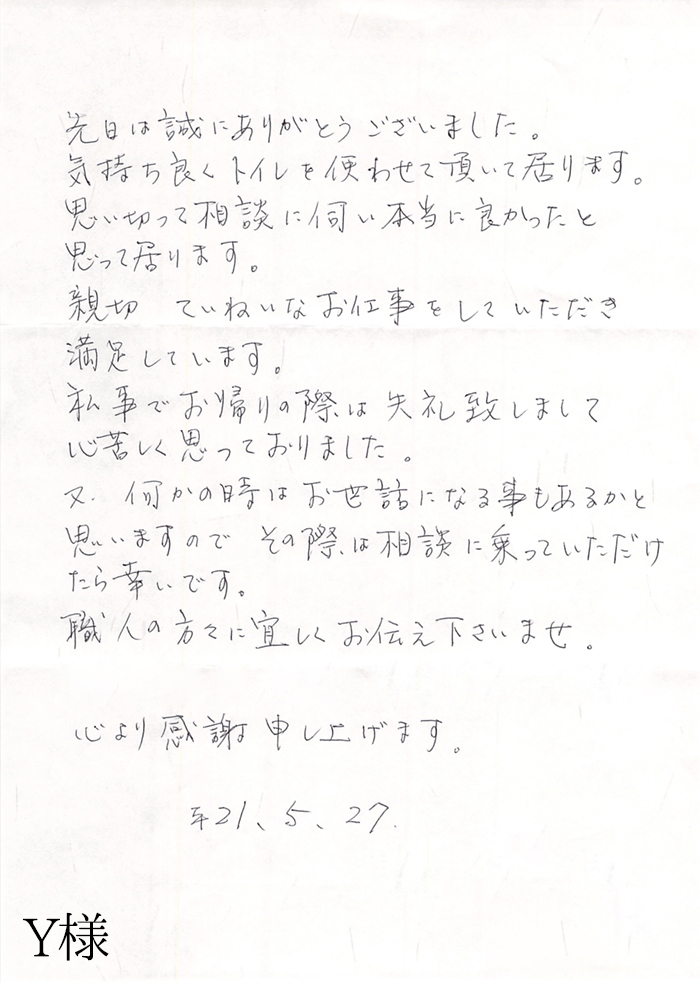 先日は誠にありがとうございました。
気持ち良くトイレを使わせて頂いて居ります。
思い切って相談に伺い本当に良かったと
思って居ります。
親切 ていねいなお仕事をしていただき
満足しています。
私事でお帰りの際は失礼致しまして
心苦しく思っておりました。
又、何かの時はお世話になる事もあるかと
思いますので その際は相談に乗っていただけ
たら幸いです。
職人の方々に宜しくお伝え下さいませ。
心より感謝申し上げます。
平21、5、27.
Y様